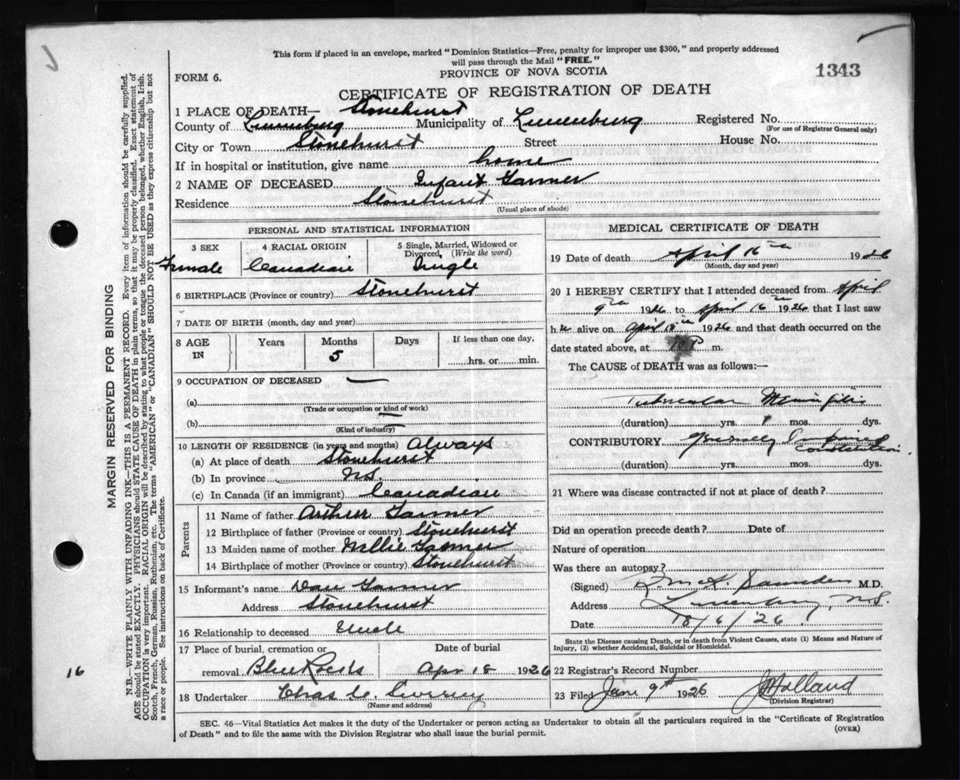 This form if placed in an envelope, marked "Dominion Statistics—Free, penalty for improper use $300," and properly addressed
will pass through the Mail "FREE."
PROVINCE OF NOVA SCOTIA
1343
FORM 6.
CERTIFICATE OF REGISTRATION OF DEATH
1 PLACE OF DEATH— Stonehurst
County of Lunenburg Municipality of Lunenburg Registered No.
(For use of Registrar General only)
City or Town Stonehurst Street House No.
If in hospital or institution, give name home
2 NAME OF DECEASED Infant Tanner
Residence Stonehurst
(Usual place of abode)
PERSONAL AND STATISTICAL INFORMATION
3 SEX 4 RACIAL ORIGIN 5 Single, Married, Widowed or
Divorced, (Write the word)
Female Canadian Single
6 BIRTHPLACE (Province or country) Stonehurst
7 DATE OF BIRTH (month, day and year)
8 AGE IN Years Months Days If less than one day,
5 hrs. or min.
9 OCCUPATION OF DECEASED —
(a)
(Trade or occupation or kind of work)
(b)
(Kind of industry)
10 LENGTH OF RESIDENCE (in years and months) Always
(a) At place of death Stonehurst
(b) In province N.S.
(c) In Canada (if an immigrant) Canadian
Parents
11 Name of father Arthur Tanner
12 Birthplace of father (Province or country) Stonehurst
13 Maiden name of mother Tanner
14 Birthplace of mother (Province or country) Stonehurst
15 Informant's name Dan Tanner
Address Stonehurst
16 Relationship to deceased Uncle
17 Place of burial, cremation or Date of burial
removal Blue Rocks Apr 18 1926
18 Undertaker Chas
(Name and address)
MEDICAL CERTIFICATE OF DEATH
19 Date of death April 16th 1926
(Month, day and year)
20 I HEREBY CERTIFY that I attended deceased from April
9th 1926 to April 16th 1926 that I last saw
h alive on April 1926 and that death occurred on
date stated above, at m.
The CAUSE of DEATH was as follows:—
Tubercular Meningitis
(duration) yrs. mos. dys.
CONTRIBUTORY
constitution.
(duration) yrs. mos. dys.
21 Where was disease contracted if not at place of death?
Did an operation precede death? Date of
Nature of operation
Was there an autopsy?
(Signed) Saunders M.D.
Address Lunenburg, N.S.
Date 18/6/26
State the Disease causing Death, or in death from Violent Causes, state (1) Means and Nature of
Injury, (2) whether Accidental, Suicidal or Homicidal.
22 Registrar's Record Number
23 Filed June 9th 1926 Holland
(Division Registrar)
SEC. 46—Vital Statistics Act makes it the duty of the Undertaker or person acting as Undertaker to obtain all the particulars required in the "Certificate of Registration
of Death" and to file the same with the Division Registrar who shall issue the burial permit.
(OVER)
MARGIN RESERVED FOR BINDING
N.B.—WRITE PLAINLY WITH UNFADING INK—THIS IS A PERMANENT RECORD. Every item of information should be carefully supplied.
AGE should be stated EXACTLY. PHYSICIANS should STATE CAUSE OF DEATH in plain terms, so that it may be properly classified. Exact statement of
OCCUPATION is very important. RACIAL ORIGIN will be described by stating to what people or tongue the deceased person belonged, whether English, Irish,
Scotch, French, German, Russian, Ruthenian, etc. The terms "AMERICAN" or "CANADIAN" SHOULD NOT BE USED as they express citizenship but not
a race or people. See instructions on back of Certificate.
16